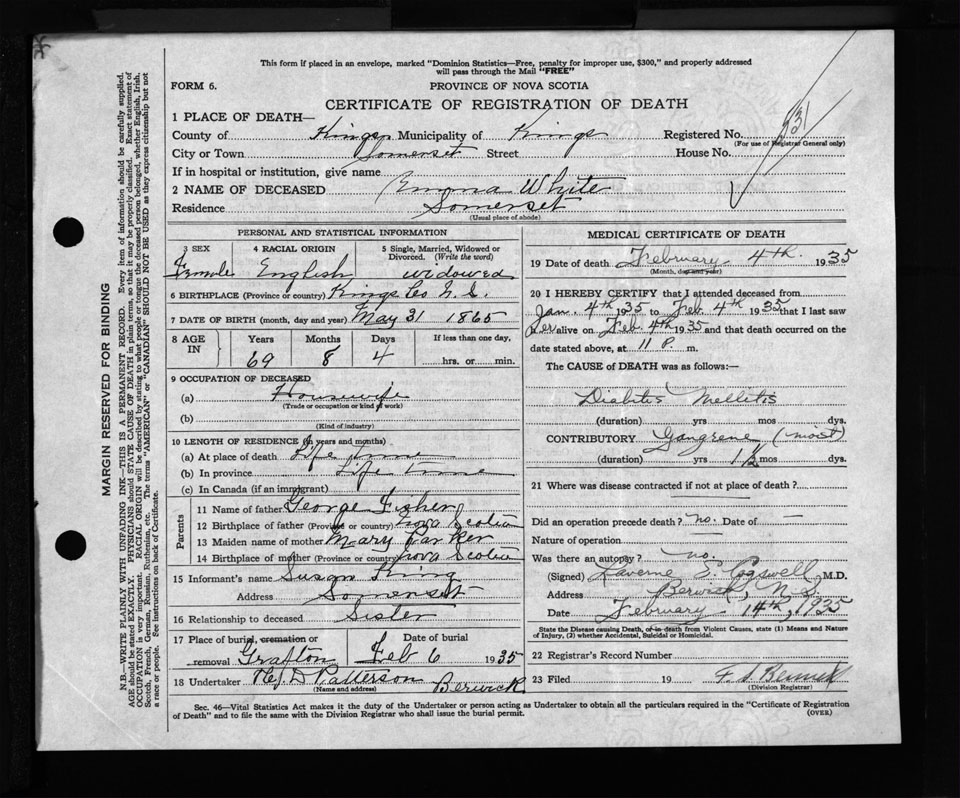 This form if placed in an envelope, marked "Dominion Statistics—Free, penalty for improper use, $300," and properly addressed
will pass through the Mail "FREE"
FORM 6. PROVINCE OF NOVA SCOTIA
CERTIFICATE OF REGISTRATION OF DEATH
1 PLACE OF DEATH—
County of Kings Municipality of Kings Registered No. 931
(For use of Registrar General only)
City or Town Somerset Street House No.
If in hospital or institution, give name
2 NAME OF DECEASED Emma White
Residence Somerset
(Usual place of abode)
PERSONAL AND STATISTICAL INFORMATION
3 SEX 4 RACIAL ORIGIN 5 Single, Married, Widowed or Divorced. (Write the word)
Female English widowed
6 BIRTHPLACE (Province or country) Kings Co N.S.
7 DATE OF BIRTH (month, day and year) May 31 1865
8 AGE IN Years Months Days If less than one day,
69 8 4 hrs. or min.
9 OCCUPATION OF DECEASED
(a) Housewife
(Trade or occupation or kind of work)
(b)
(Kind of industry)
10 LENGTH OF RESIDENCE (in years and months)
(a) At place of death Life time
(b) In province Life time
(c) In Canada (if an immigrant)
Parents
11 Name of father George Fisher
12 Birthplace of father (Province or country) Nova Scotia
13 Maiden name of mother Mary Parker
14 Birthplace of mother (Province or country) Nova Scotia
15 Informant's name Susan King
Address Somerset
16 Relationship to deceased Sister
17 Place of burial, cremation or removal Grafton Date of burial Feb 6 1935
18 Undertaker D Patterson Berwick
(Name and address)
MEDICAL CERTIFICATE OF DEATH
19 Date of death February 4th. 1935
(Month, day and year)
20 I HEREBY CERTIFY that I attended deceased from
Jan. 4th 1935 to Feb. 4th 1935 that I last saw
her alive on Feb. 4th 1935 and that death occurred on the
date stated above, at 11 P. m.
The CAUSE of DEATH was as follows:—
Diabetes Mellitis
(duration) yrs mos dys.
CONTRIBUTORY Gangrene (moist)
(duration) yrs 1½ mos dys.
21 Where was disease contracted if not at place of death?
Did an operation precede death? no. Date of —
Nature of operation
Was there an autopsy? no.
(Signed) Laverne E. Cogswell, M.D.
Address Berwick, N.S.
Date February 14th, 1935
State the Disease causing Death, or in death from Violent Causes, state (1) Means and Nature
of Injury, (2) whether Accidental, Suicidal or Homicidal.
22 Registrar's Record Number
23 Filed 19
(Division Registrar)
Sec. 46—Vital Statistics Act makes it the duty of the Undertaker or person acting as Undertaker to obtain all the particulars required in the "Certificate of Registration
of Death" and to file the same with the Division Registrar who shall issue the burial permit. (OVER)
MARGIN RESERVED FOR BINDING
N.B.—WRITE PLAINLY WITH UNFADING INK—THIS IS A PERMANENT RECORD. Every item of information should be carefully supplied.
AGE should be stated EXACTLY. PHYSICIANS should STATE CAUSE OF DEATH in plain terms, so that it may be properly classified. Exact statement of
OCCUPATION is very important. RACIAL ORIGIN will be described by stating to what people or tongue the deceased person belonged, whether English, Irish,
Scotch, French, German, Russian, Ruthenian, etc. The terms "AMERICAN" or "CANADIAN" SHOULD NOT BE USED as they express citizenship but not
a race or people. See instructions on back of Certificate.